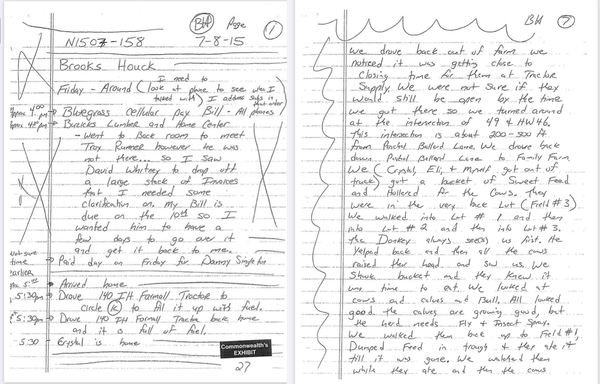 BH Page 1
N1507-158 7-8-15
Brooks Houck
I need to
Friday - Around (look at phone to see who I
talked with) I address subs in that order
Approx 4:00 pm → Bluegrass cellular pay Bill - All phones
Approx 4:30 pm → Buzicks Lumber and Home Center
- went to Back room to meet
Troy Runner however he was
not there... so I saw
David Whitney to drop off
a large stack of Invoices
that I needed some
clarification on. My Bill is
due on the 10th so I
wanted him to have a
few days to go over it
and get it back to me.
Not sure time earlier → Paid day on Friday for Danny Singleton
5:15 → Arrived home
5:30pm → Drove 140 IH Farmall Tractor to
circle K to fill it up with fuel.
5:30pm → Drove 140 IH Farmall Tractor back home
and it is full of fuel.
- 5:30 - Crystal is home
Commonwealth's
EXHIBIT
27
BH 7
we drove back out of farm we
noticed it was getting close to
closing time for them at Tractor
Supply. We were not sure if they
would still be open by the time
we got there so we turned around
at the intersection of 49 & HW46.
This intersection is about 200-300 ft.
from Paschal Ballard Lane. We drove back
down Paschal Ballard Lane to Family Farm.
We (Crystal, Eli, & Myself got out of
truck) got a bucket of Sweet Feed
and Hollored for the Cows. They
were in the very back Lot (Field #3).
We walked into Lot #1 and then
into Lot #2 and then into Lot #3.
The Donkey always see(s) us first. He
Yelped back and then all the cows
raised their head and saw us. We
Shook bucket and they knew it
was time to eat. We looked at
cows and calves and Bull. All looked
good the calves are growing good, but
the herd needs Fly & Insect Spray.
We walked them back up to Field #1,
Dumped Feed in trough & they ate it
till it was gone. We watched them
while they ate and then the cows